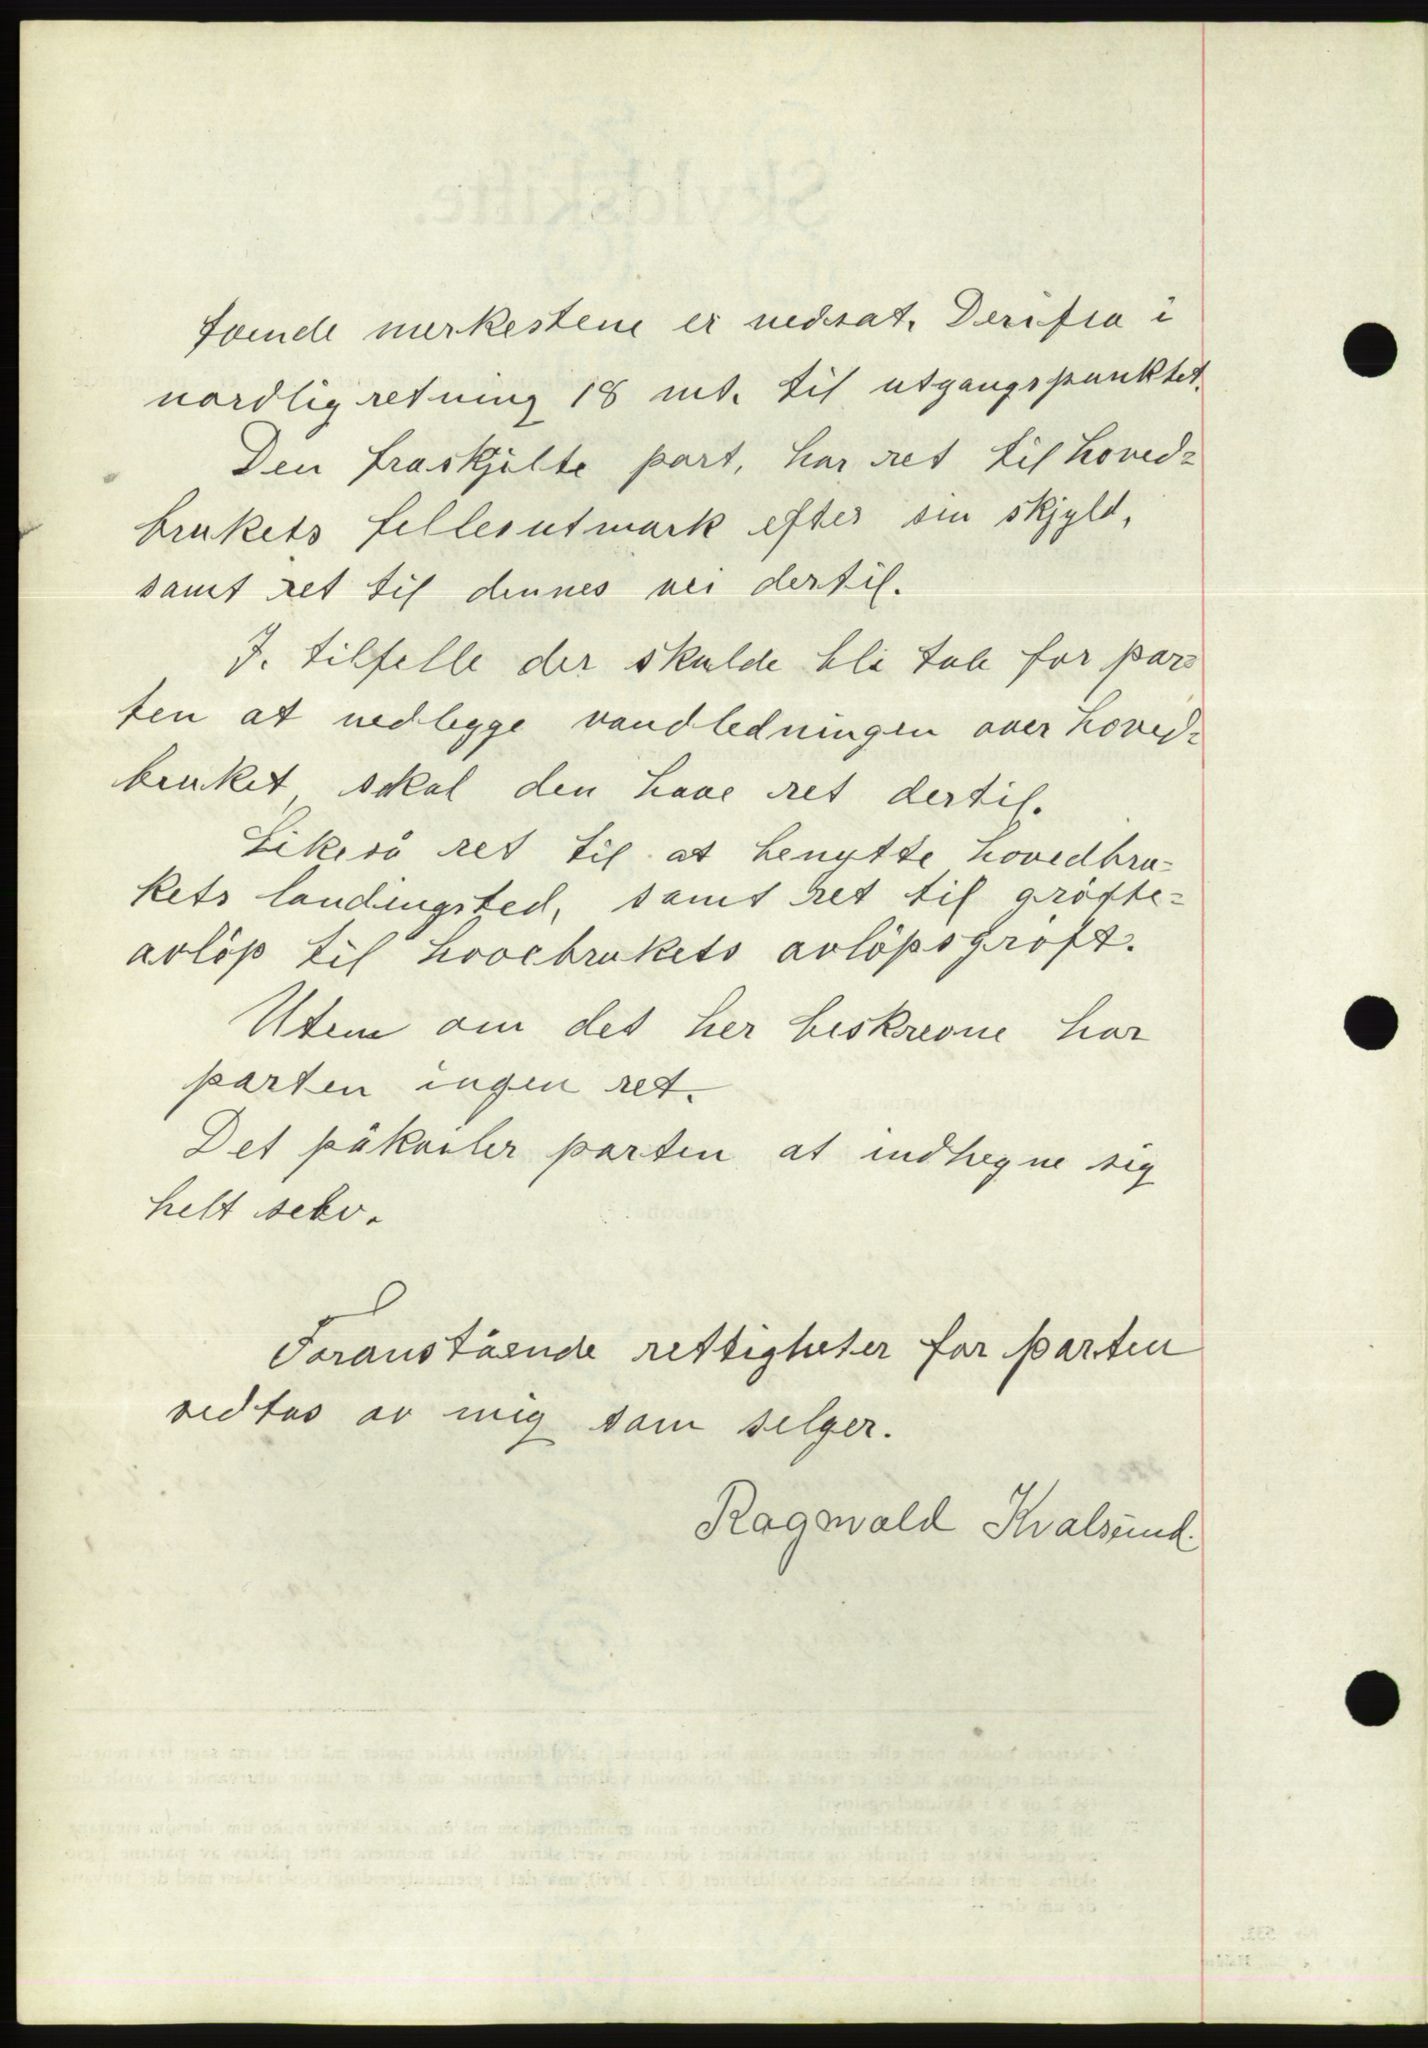 foende merkestene er nedsat. Derifra i
nordlig retning 18 mt. til utgangspunktet.
Den fraskjilte part, har ret til hoved=
brukets fellesutmark efter sin skjyld,
samt ret til dennes vei dertil.
I. tilfelle der skulde bli tale for par=
ten at nedlegge vandledningen over hoved=
bruket, skal den have ret dertil.
Likeså ret til at benytte hovedbru=
kets landingsted, samt ret til grøfte=
avløp til hovebrukets avløpsgrøft.
Uten om det her beskrevne har
parten ingen ret.
Det påkviler parten at indhegne sig
helt selv.
Foranstående rettigheter for parten
vedtas av mig som selger.
Ragnvald Kvalsund.